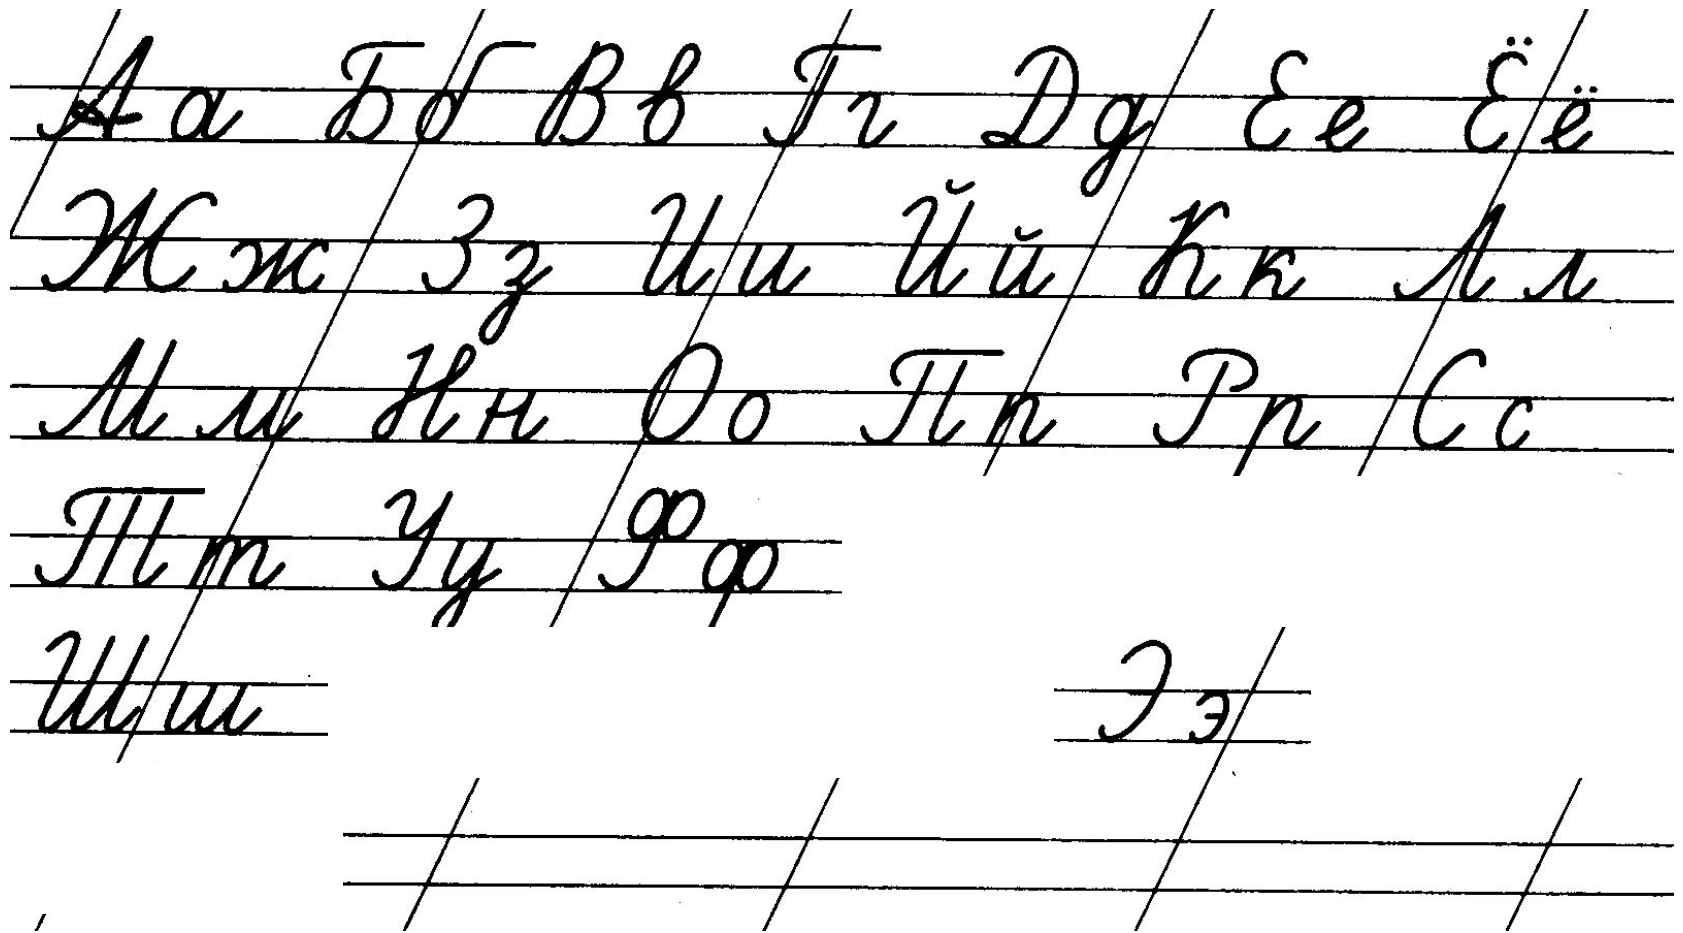 Аа Бб Вв Гг Дд Ее Ёё
Жж Зз Ии Йй Кк Лл
Мм Нн Оо Пп Рр Сс
Тт Уу Фф
Шш Ээ